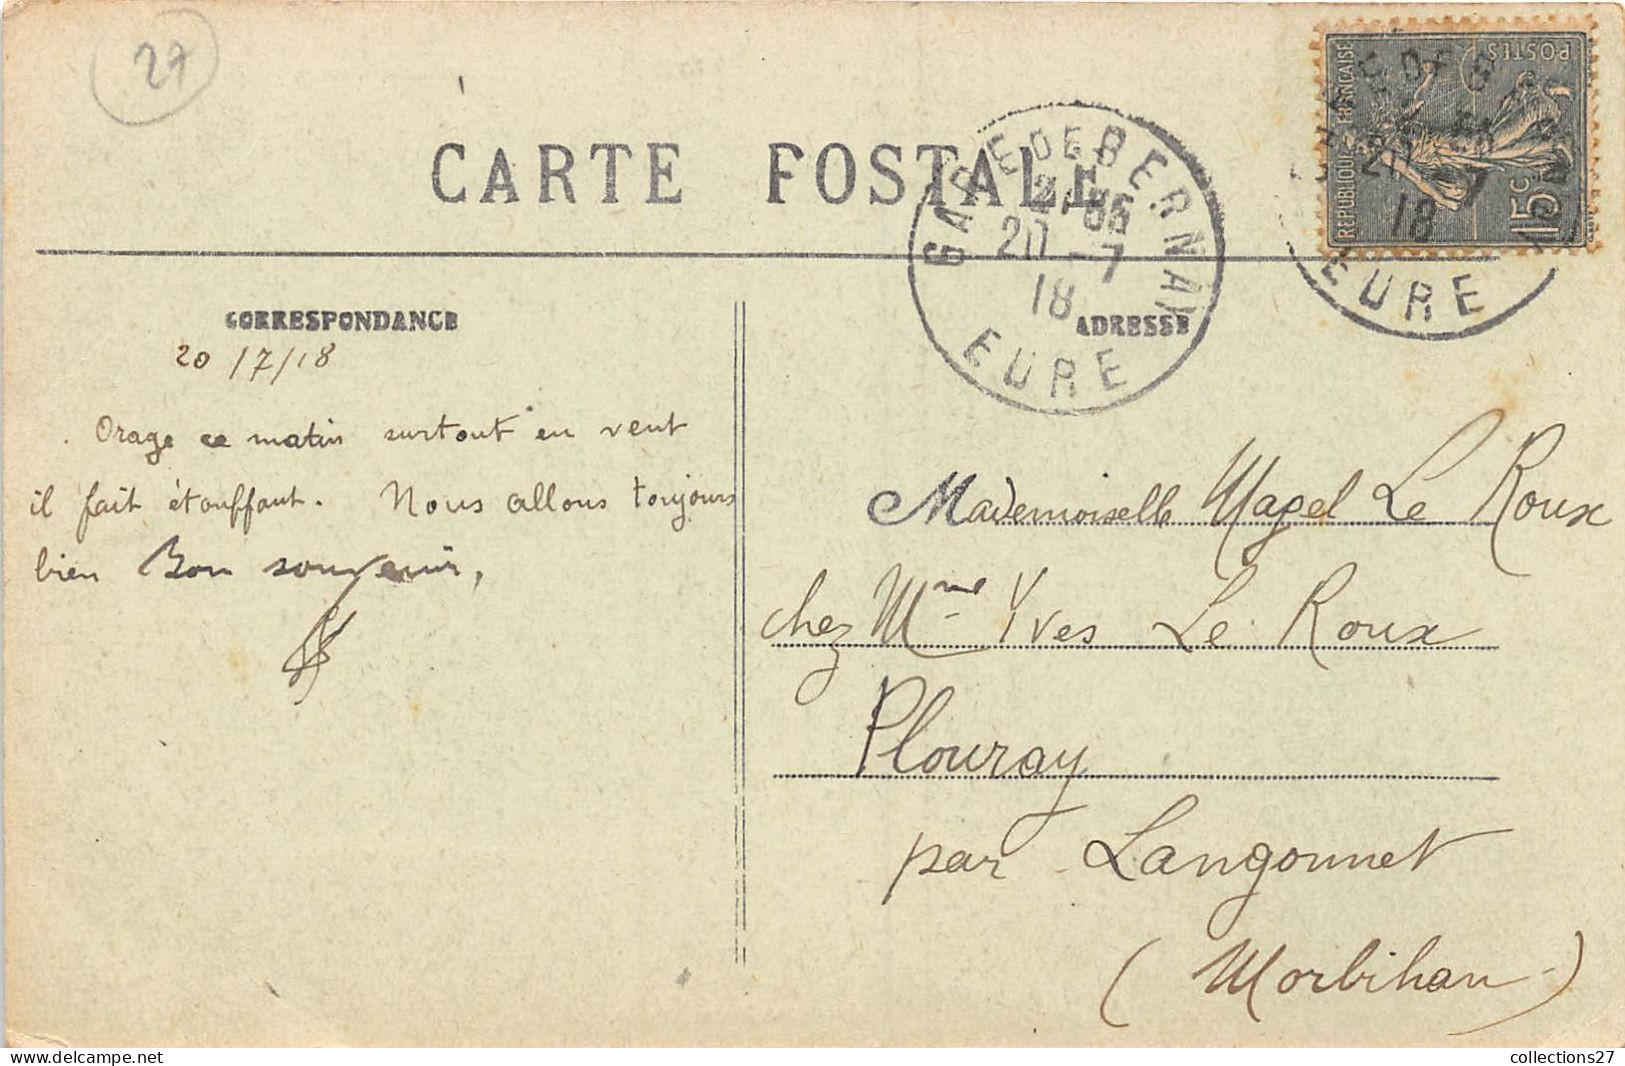 27
CARTE POSTALE
GARE DE BERNAY
21 35
20 -7
18
EURE
REPUBLIQUE FRANÇAISE
POSTES
15c
20 -7
18
EURE
CORRESPONDANCE
20/7/18
Orage ce matin surtout en vent
il fait étouffant. Nous allons toujours
bien Bon souvenir,
ADRESSE
Mademoiselle Magel Le Roux
chez Mme Yves Le Roux
Plouray
par Langonnet
(Morbihan)
collections27